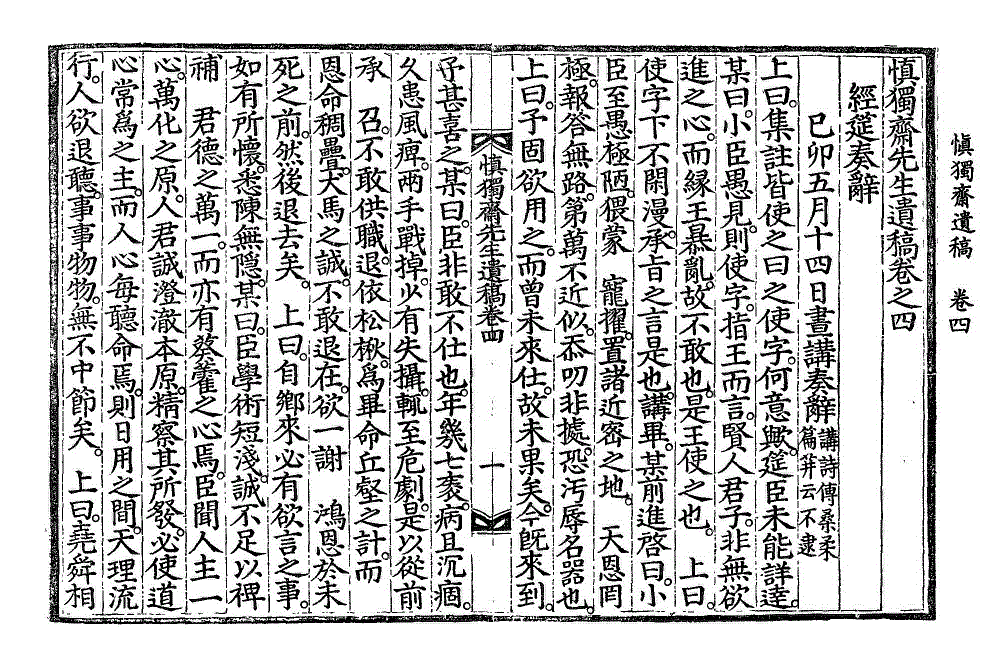 愼獨齋遺稿 卷四
愼獨齋先生遺稿卷之四
經筵奏辭
己卯五月十四日晝講奏辭講詩傳桑柔篇荓云不逮
上曰。集註皆使之曰之使字。何意歟。筵臣未能詳達。
某曰。小臣愚見。則使字。指王而言。賢人君子。非無欲
進之心。而緣王暴亂。故不敢也。是王使之也。 上曰。
使字下不閑漫。承旨之言是也。講畢。某前進啓曰。小
臣至愚極陋。猥蒙 寵擢。置諸近密之地。 天恩罔
極。報答無路。第萬不近似。忝叨非據。恐汚辱名器也。
上曰。予固欲用之。而曾未來仕。故未果矣。今旣來到。
愼獨齋先生遺稿卷四 一
予甚喜之。某曰。臣非敢不仕也。年幾七袠。病且沉痼。
久患風痺。兩手戰掉。少有失攝。輒至危劇。是以從前
承 召。不敢供職。退依松楸。爲畢命丘壑之計。而
恩命稠疊。犬馬之誠。不敢退在。欲一謝 鴻恩於未
死之前。然後退去矣。 上曰。自鄕來必有欲言之事。
如有所懷。悉陳無隱。某曰。臣學術短淺。誠不足以裨
補 君德之萬一。而亦有葵藿之心焉。臣聞人主一
心。萬化之原。人君誠澄澈本原。精察其所發。必使道
心常爲之主。而人心每聽命焉。則日用之間。天理流
行。人欲退聽。事事物物。無不中節矣。 上曰。堯舜相